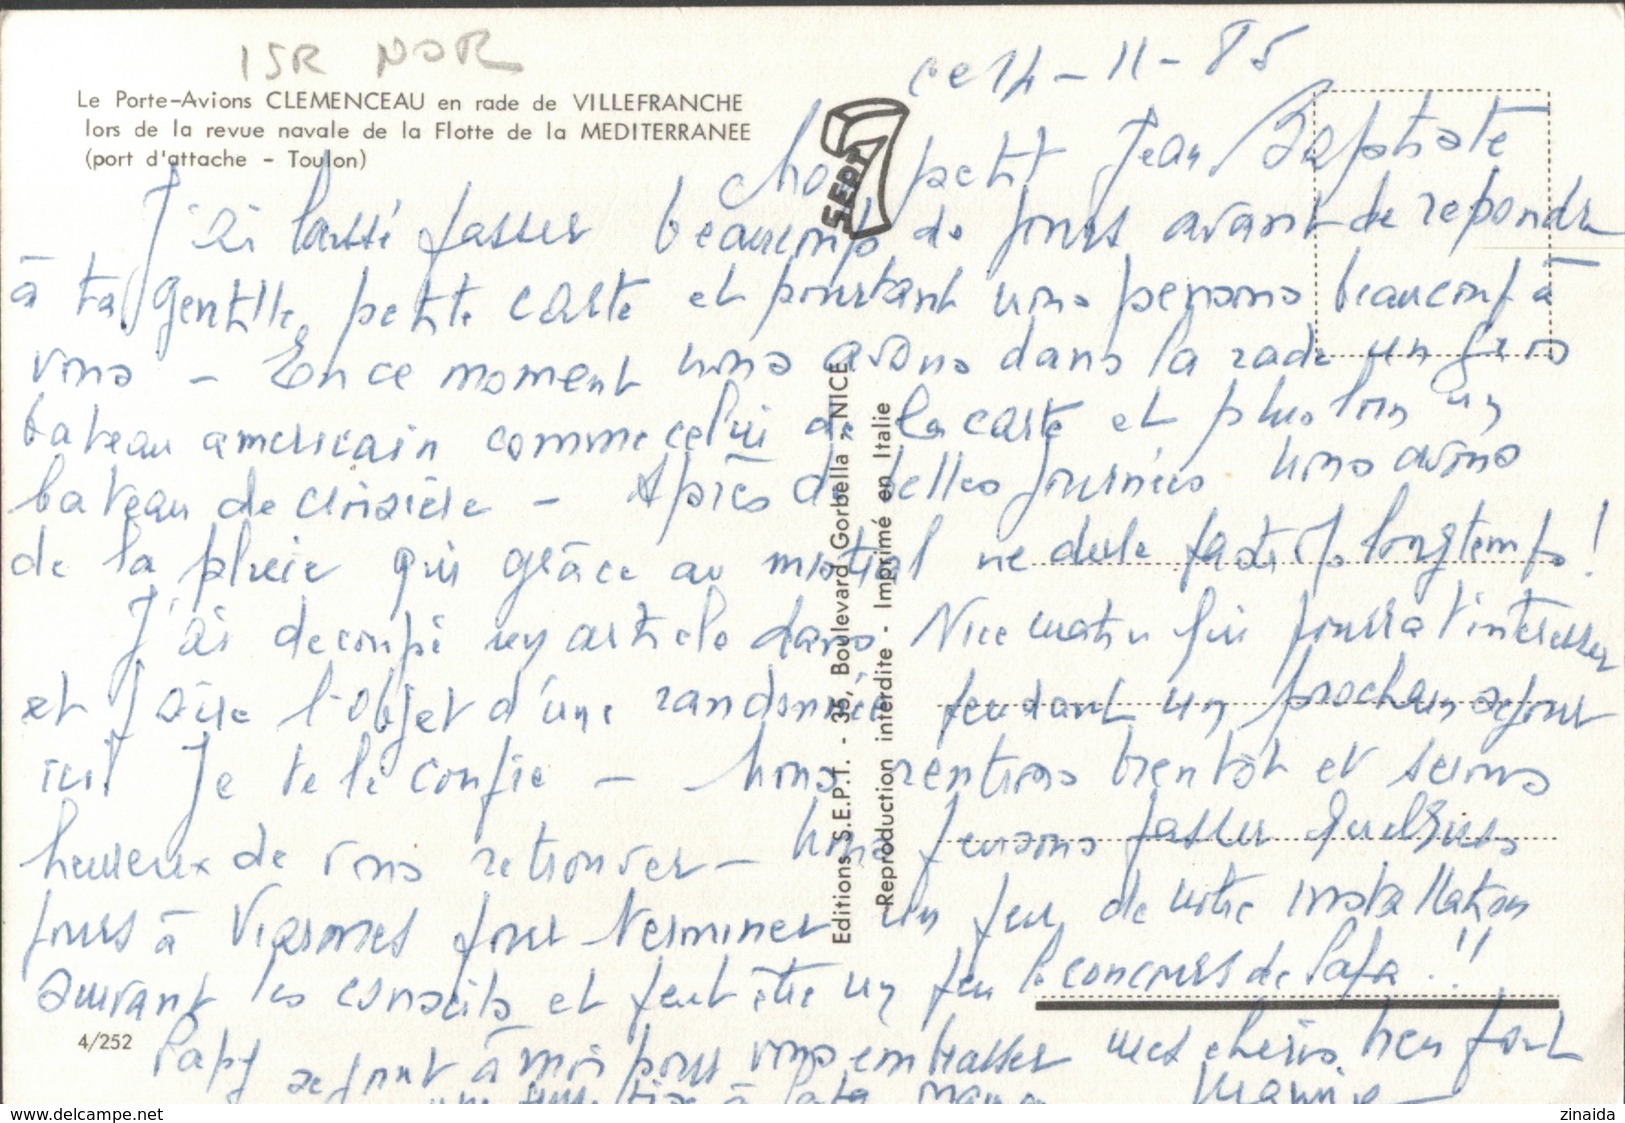 ISR NOR
Le Porte-Avions CLEMENCEAU en rade de VILLEFRANCHE
lors de la revue navale de la Flotte de la MEDITERRANEE
(port d'attache - Toulon)
ce 14-11-85
SEPT
Mon petit Jean Baptiste
J'ai laissé passer beaucoup de jours avant de repondre
à ta gentille petite carte et pourtant nous pensons beaucoup à
vous - En ce moment nous avons dans la rade un gros
bateau americain comme celui de la carte et plus loin un
bateau de croisière - Après de belles journées nous avons
de la pluie qui grâce au mistral ne dure pas longtemps!
J'ai decoupé un article dans Nice matin qui pourra t'interesser
et faire l'objet d'une randonnée pendant un prochain sejour
ici! Je te le confie - Nous rentrons bientôt et serons
heureux de vous retrouver - Nous pensons passer quelques
jours à Viarmes pour terminer un peu de notre installation
suivant les conseils et peut être un peu le concours de Papa!!
Papy se joint à moi pour vous embrasser mes chéris bien fort
à Papa Maman Mamie -
Editions S.E.P.T. - 35, Boulevard Gorbella - NICE
Reproduction interdite - Imprimé en Italie
4/252
www.delcampe.net
zinaida